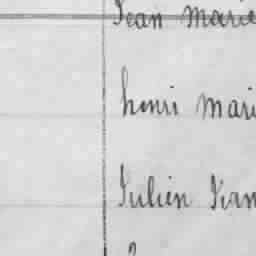 Jean Marie
henri Mari
Julien